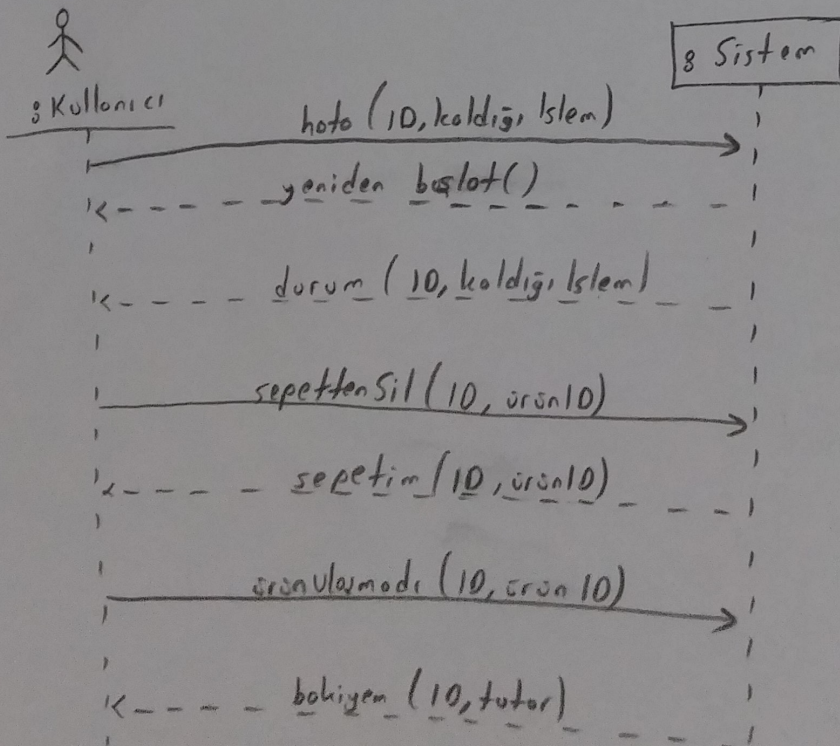 :Kullanıcı
:Sistem
hata (ID, kaldığı İşlem)
yeniden başlat()
durum (ID, kaldığı İşlem)
sepettenSil (ID, ürünID)
sepetim (ID, ürünID)
ürünUlaşmadı (ID, ürün ID)
bakiyem (ID, tutar)